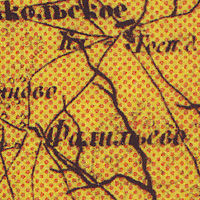 кольское
Кн
Госп д
ново
Фалильево